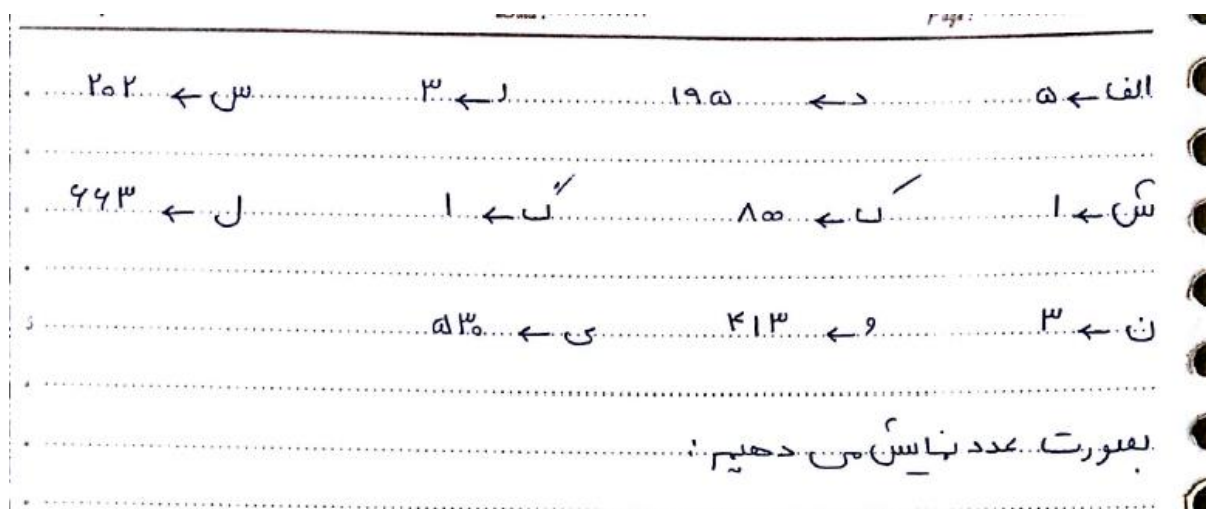 Page :
الف ← ۵ د ← ۱۹۵ ر ← ۳ س ← ۲۰۲
ش ← ۱ ک ← ۸۰۰ گ ← ۱ ل ← ۶۶۳
ن ← ۳ و ← ۴۱۳ ی ← ۵۳۰
بصورت عدد نمایش می دهیم :